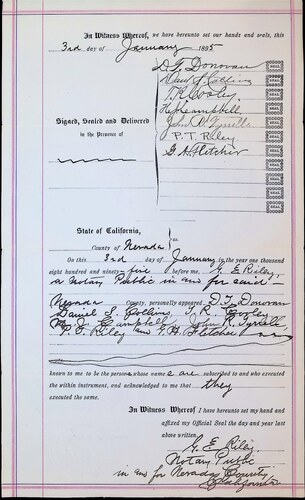 In Witness Whereof, we have hereunto set our hands and seals, this
3rd day of January 1895
D. T. Donovan SEAL
Danl S. Collins SEAL
T. R. Cooley SEAL
H. J. Campbell SEAL
John R. Tyrrell SEAL
P. T. Riley SEAL
G. H. Fletcher SEAL
Signed, Sealed and Delivered
in the Presence of
State of California,
County of Nevada ss.
On this 3rd day of January in the year one thousand
eight hundred and ninety-five before me, G. E. Riley,
a Notary Public in and for said
Nevada County, personally appeared D. T. Donovan
Daniel S. Collins, T. R. Cooley
H. J. Campbell, John R. Tyrrell
P. T. Riley and G. H. Fletcher
known to me to be the persons whose names are subscribed to and who executed the
within instrument, and acknowledged to me that they
executed the same.
In Witness Whereof I have hereunto set my hand and
affixed my Official Seal the day and year last
above written.
G. E. Riley
Notary Public
in and for Nevada County
California